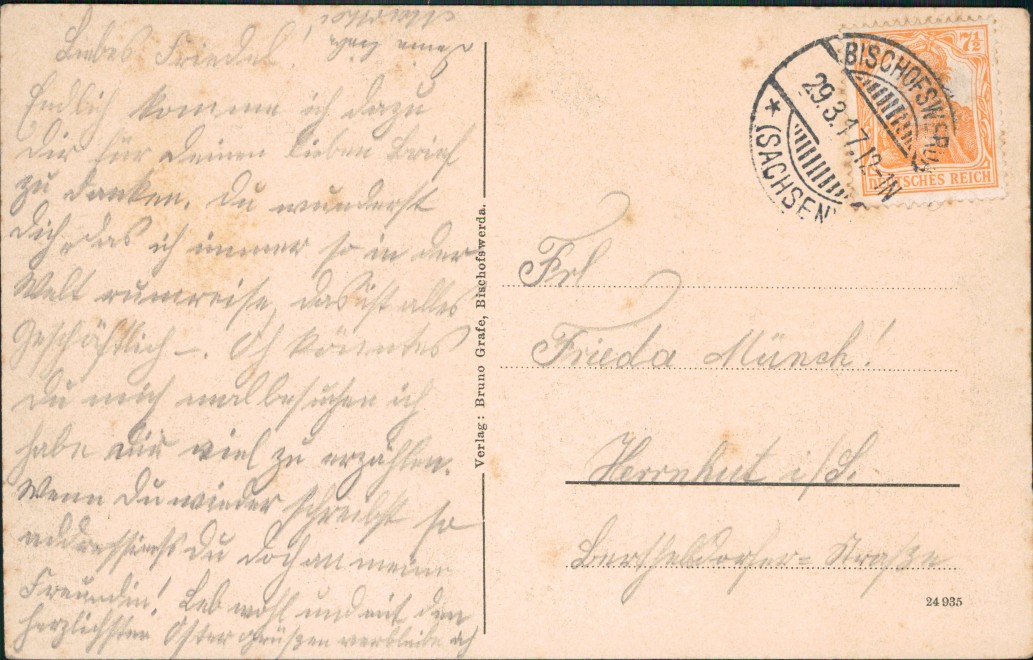 Liebes Friedel!
Endlich komme ich dazu
dir für deinen lieben Brief
zu danken. Du wunderst
dich das ich immer so in der
Welt rumreise, das ist alles
Geschäftlich –. Oh könntes
Du mich mal besuchen ich
habe dir viel zu erzählen.
Wenn Du wieder schreibst so
addressiers Du doch an meine
Freundin! Leb wohl und mit den
herzlichsten Ostergrüßen verbleibe ich
Verlag: Bruno Grafe, Bischofswerda.
BISCHOFSWERDA
29.3.17. 12-1N
* (SACHSEN)
7½
DEUTSCHES REICH
Frl
Frieda Münch!
Herrnhut i/S.
Berthelsdorfer=Straße
24935